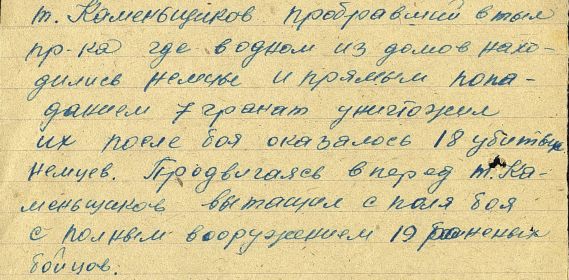 т. Каменьщиков пробравший в тыл
пр-ка где в одном из домов нахо-
дились немцы и прямым попа-
данием 7 гранат уничтожил
их после боя оказалось 18 убитых
немцев. Продвигаясь вперед т. Ка-
меньщиков вытащил с поля боя
с полным вооружением 19 раненых
бойцов.